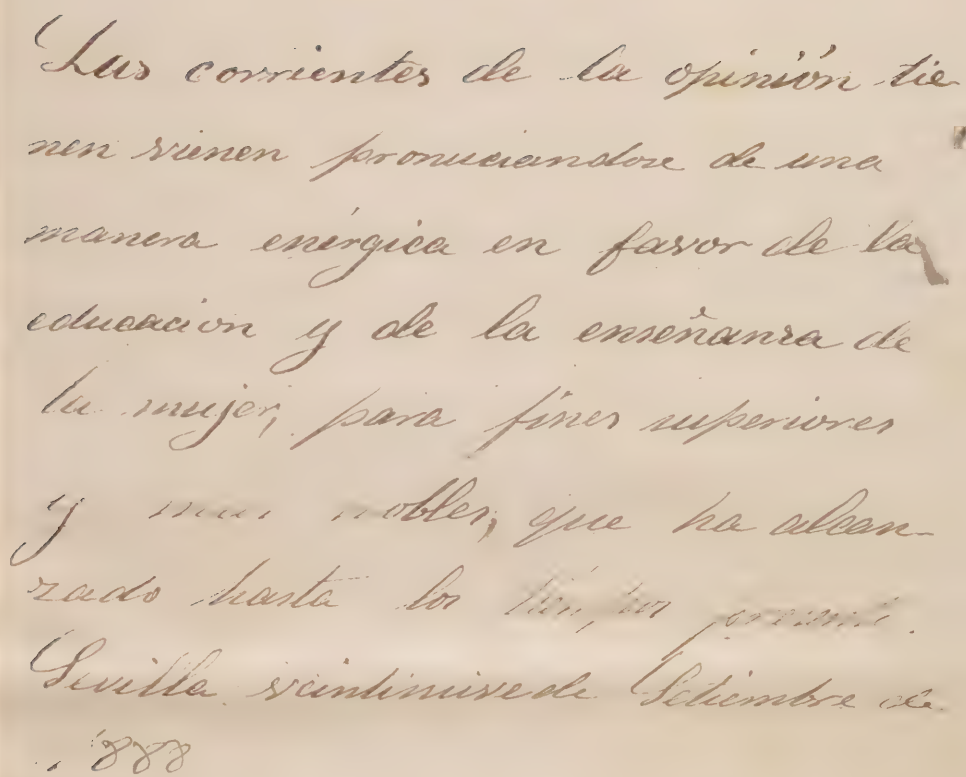 Las corrientes de la opinión tie
nen vienen pronuciandose de una
manera enérgica en favor de la
educacion y de la enseñanza de
la mujer, para fines superiores
y mas nobles, que ha alcan-
zado hasta los
Sevilla veintinuevede Setiembre de
1888